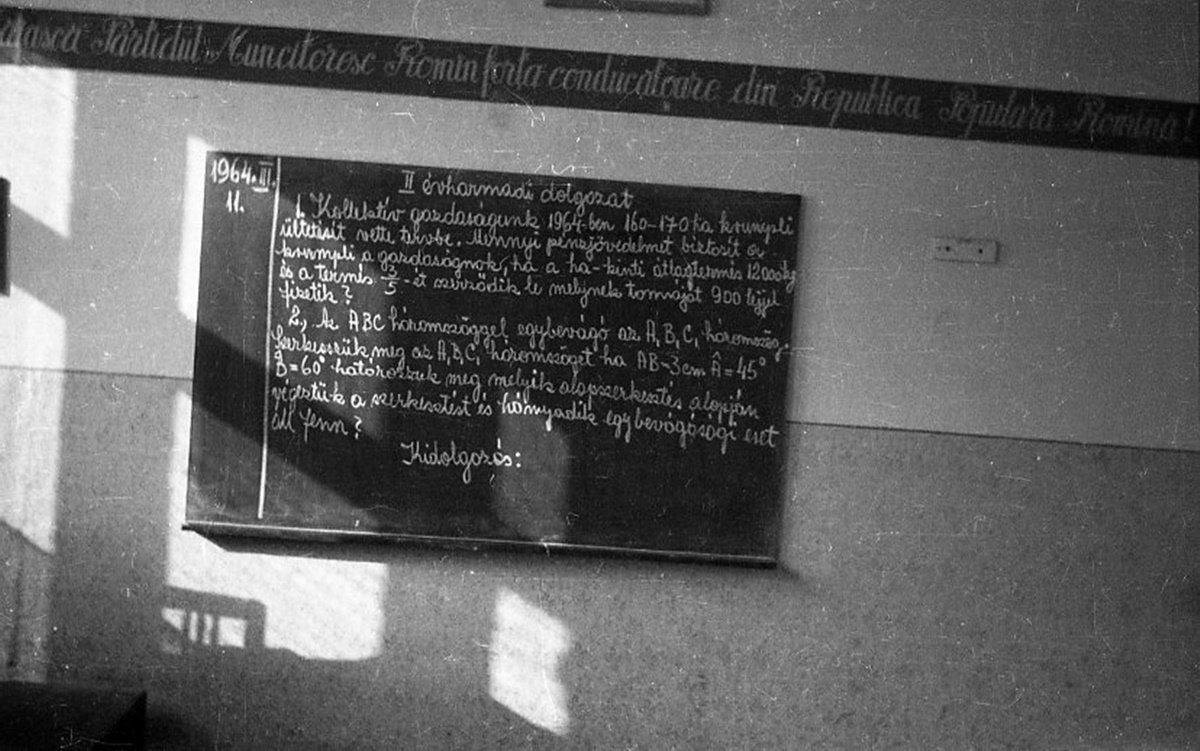 ească Partidul Muncitoresc Romîn forța conducătoare din Republica Populară Romînă!
1964. III.
11.
II évharmadi dolgozat
1. Kollektív gazdaságunk 1964-ben 160-170 ha krumpli
ültetését vette tervbe. Mennyi pénzjövedelmet biztosít a
krumpli a gazdaságnak, ha a ha-kénti átlagtermés 12000 kg
és a termés 3/5-ét szerződik le melynek tonnáját 900 lejjel
fizetik?
2, Az ABC háromszöggel egybevágó az A₁B₁C₁ háromszög.
Szerkesszük meg az A₁B₁C₁ háromszöget ha AB=3cm Â=45°
B̂=60° határozzuk meg melyik alapszerkesztés alapján
végeztük a szerkesztést és hányadik egybevágósági eset
áll fenn?
Kidolgozás: